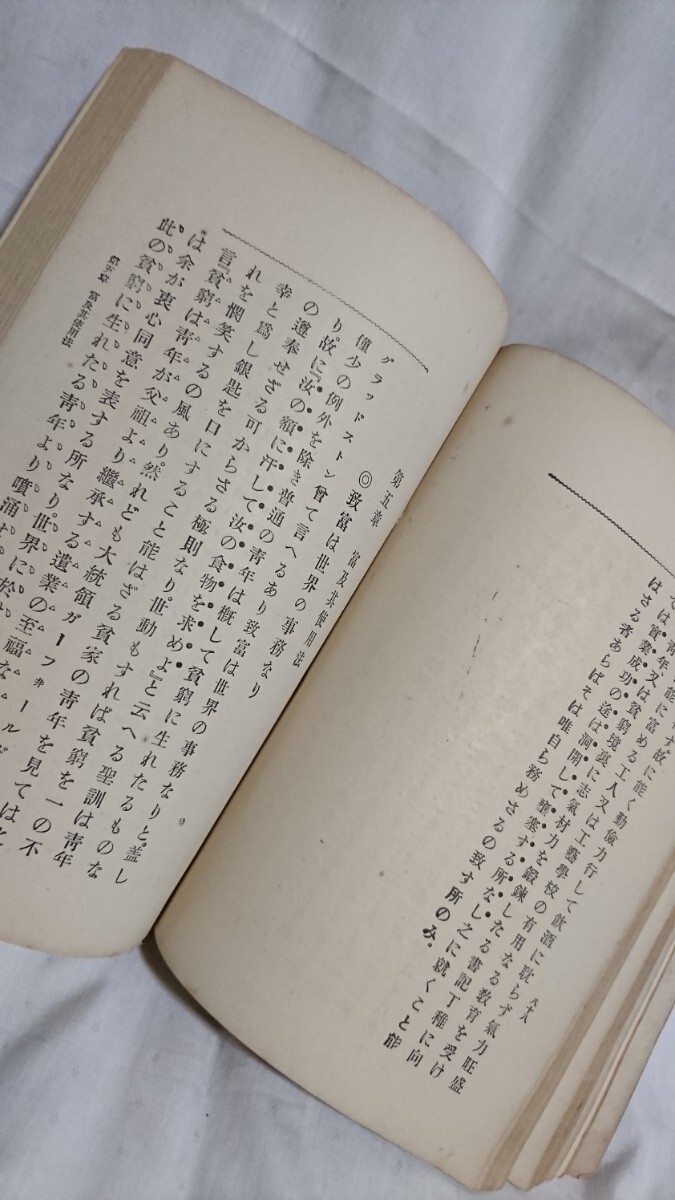 八十八
ては青年
能に富める工人又は工藝學校の有用なる教育を受け
す故に能く勤儉力行して飮酒に耽らず氣力旺盛
又は貧窮の境裏に志氣材力を鍛鍊したる書記丁稚に向
實業成功の途は洞開して壅塞する所なし之に就くこと能
はさる者あらばそは唯自ら務めさるの致す所のみ。
第五章 富及其使用法
◎致富は世界の事務なり
グラッドストン曾て言へるあり致富は世界の事務なりと蓋し
僅少の例外を除き普通の青年は概して貧窮に生れたるものな
り故に『汝の額に汗して汝の食物を求めよ』と云へる聖訓は青年
の遵奉せざる可からさる極則なり世動もすれば貧窮を一の不
幸と爲し銀匙を口にすること能はざる貧家の青年を見ては之
れを憫笑するの風あり然れども大統領ガーフ井ールド
言『貧窮は青年が父祖より繼承する遺業の至福な
は余が衷心同意を表する所なり世界に於
此の貧窮に生れたる青年より噴涌す
第五章 富及其使用法